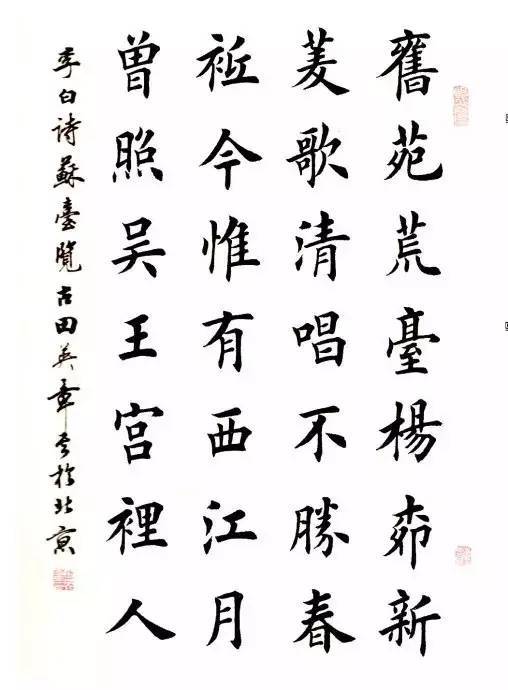 舊苑荒臺楊柳新
菱歌清唱不勝春
祗今惟有西江月
曾照吴王宫裡人
李白詩蘇臺覽古田英章书於北京